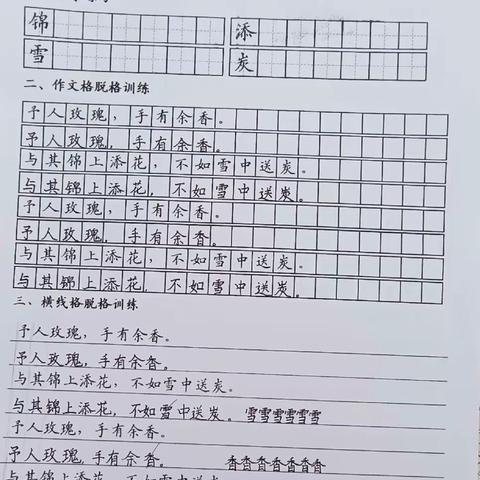 锦 添
雪 炭
二、作文格脱格训练
予人玫瑰，手有余香。
予人玫瑰，手有余香。
与其锦上添花，不如雪中送炭。
与其锦上添花，不如雪中送炭。
予人玫瑰，手有余香。
予人玫瑰，手有余香。
与其锦上添花，不如雪中送炭。
与其锦上添花，不如雪中送炭。
三、横线格脱格训练
予人玫瑰，手有余香。
予人玫瑰，手有余香。
与其锦上添花，不如雪中送炭。
与其锦上添花，不如雪中送炭。雪雪雪雪雪雪
予人玫瑰，手有余香。
予人玫瑰，手有余香。 香香香香香香香
与其锦上添花，不如雪中送炭